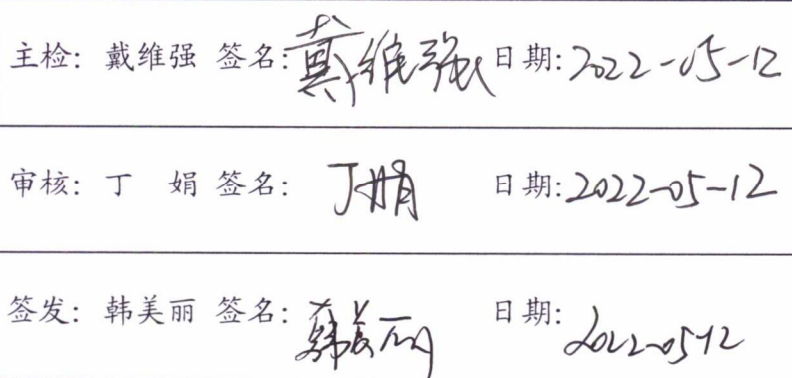 主检: 戴维强 签名: 戴维强 日期: 2022-05-12
审核: 丁 娟 签名: 丁娟 日期: 2022-05-12
签发: 韩美丽 签名: 韩美丽 日期: 2022-05-12